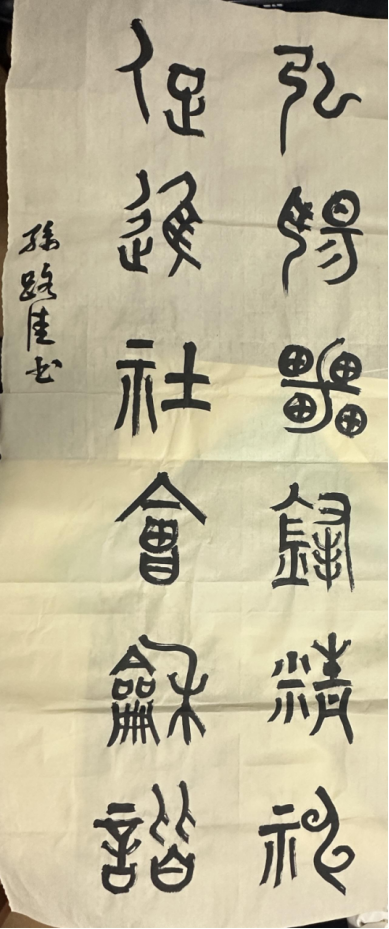 弘揚雷鋒精神
促進社會龢諧
孫路佳书